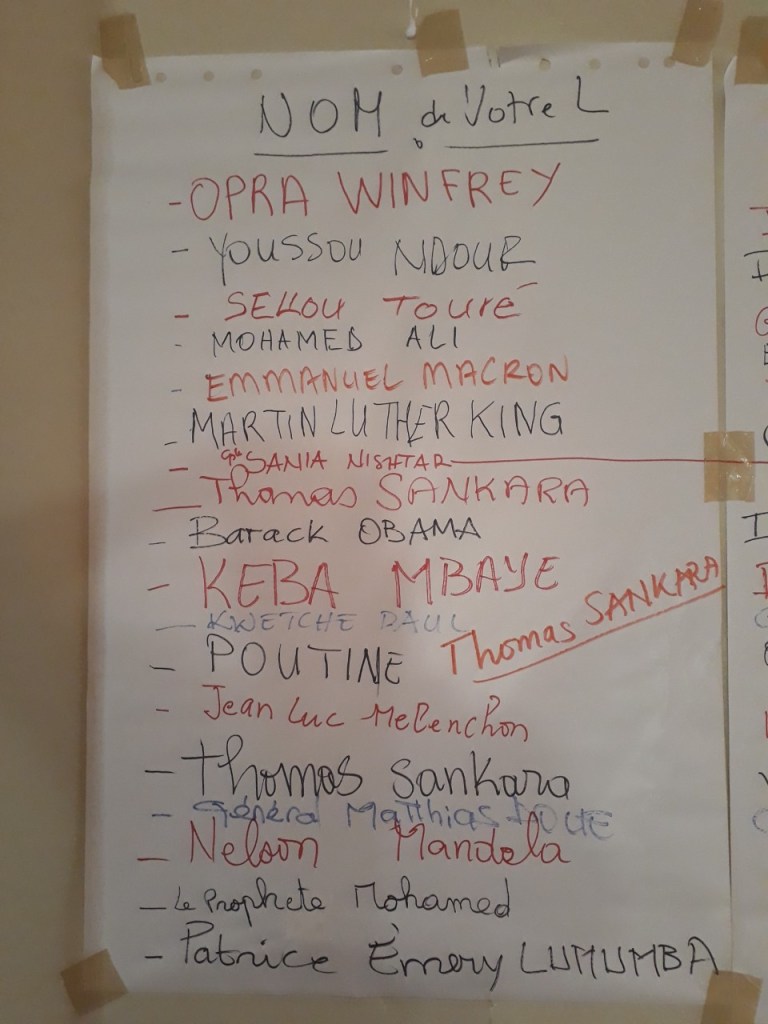 NOM de Votre L
- OPRA WINFREY
- YOUSSOU NDOUR
- SEKOU TOURÉ
- MOHAMED ALI
- EMMANUEL MACRON
- MARTIN LUTHER KING
- SANIA NISHTAR
- Thomas SANKARA
- Barack OBAMA
- KEBA MBAYE
- KWETCHE PAUL
- POUTINE
Thomas SANKARA
- Jean Luc Melenchon
- Thomas Sankara
- Général Matthias
- Nelson Mandela
- Le Prophete Mohamed
- Patrice Émery LUMUMBA